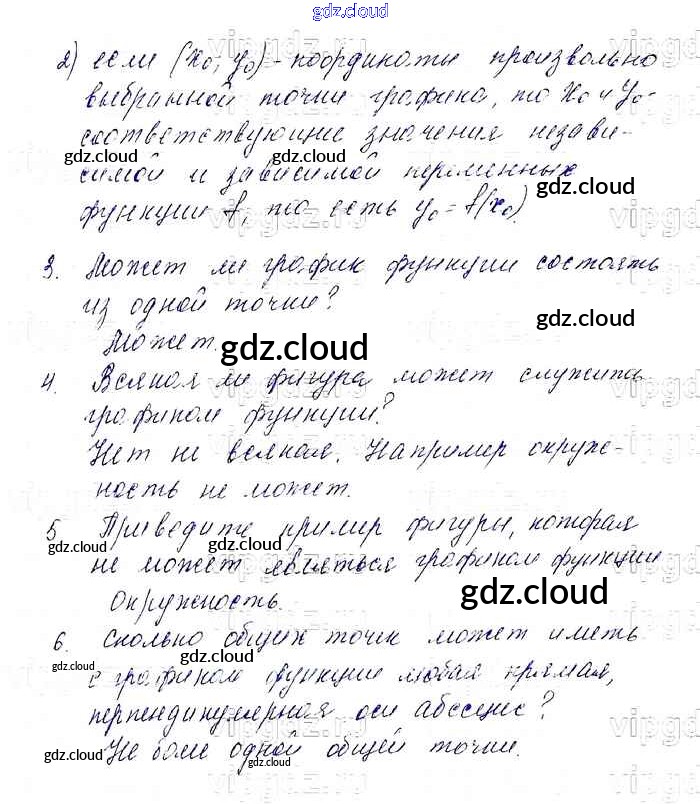 gdz.cloud
2) если (x₀; y₀) - координаты произвольно
выбранной точки графика, то x₀ и y₀ -
соответствующие значения незави-
gdz.cloud gdz.cloud
симой и зависимой переменных
gdz.cloud
функции f, то есть y₀ = f(x₀).
3. Может ли график функции состоять
из одной точки?
gdz.cloud
Может.
gdz.cloud
4. Всякая ли фигура может служить
gdz.cloud
графиком функции?
Нет не всякая. Например окруж-
ность не может.
5 Приведите пример фигуры, которая
gdz.cloud gdz.cloud
не может являться графиком функции
Окружность.
gdz.cloud
6. Сколько общих точек может иметь
gdz.cloud gdz.cloud
с графиком функции любая прямая,
перпендикулярная оси абсцисс?
Не боле одной общей точки.
gdz.cloud gdz.cloud